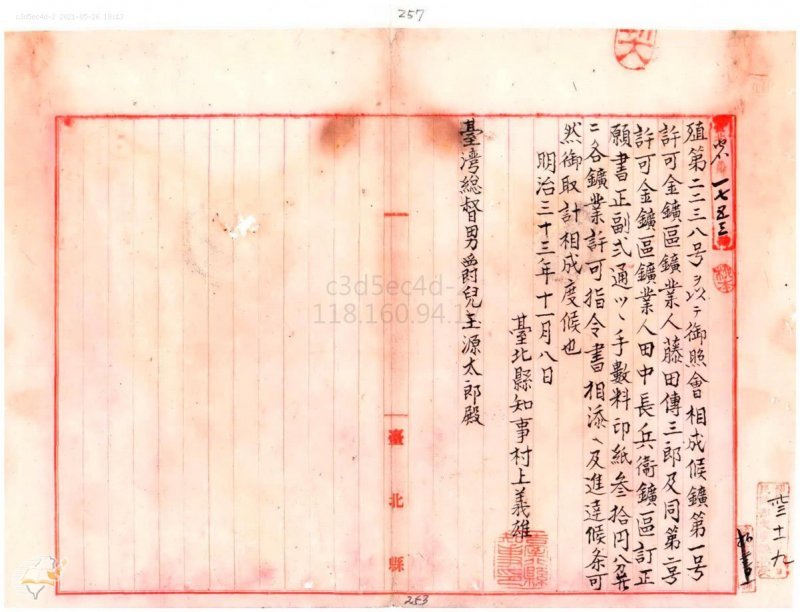 c3d5ec4d-2 2021-05-26 18:13
257
一七五三
殖第二二三八号ヲ以テ御照會相成候鑛第一号
許可金鑛區鑛業人藤田傳三郎及同第二号
許可金鑛區鑛業人田中長兵衞鑛區訂正
願書正副弍通ツヽ手數料印紙叄拾円
ニ各鑛業許可指令書相添ヘ及進達候条可
然御取計相成度候也
明治三十三年十一月八日
臺北縣知事村上義雄
臺湾総督男爵兒玉源太郎殿
臺北縣
十一 九
c3d5ec4d-
118.160.94.1
253